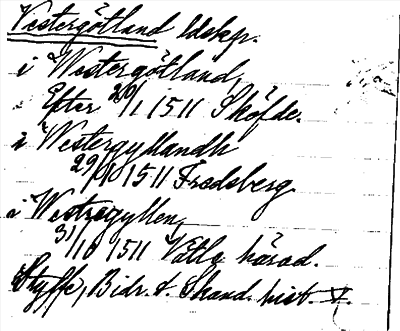 Vestergötland ldskp.
i Westergötland,
Efter 20/1 1511 Sköfde.
i Westergyllandh
29/10 1511 Fredsberg
i Westregyllen,
31/10 1511 Vatla härad.
Styffe, Bidr. t. Skand. hist. V.